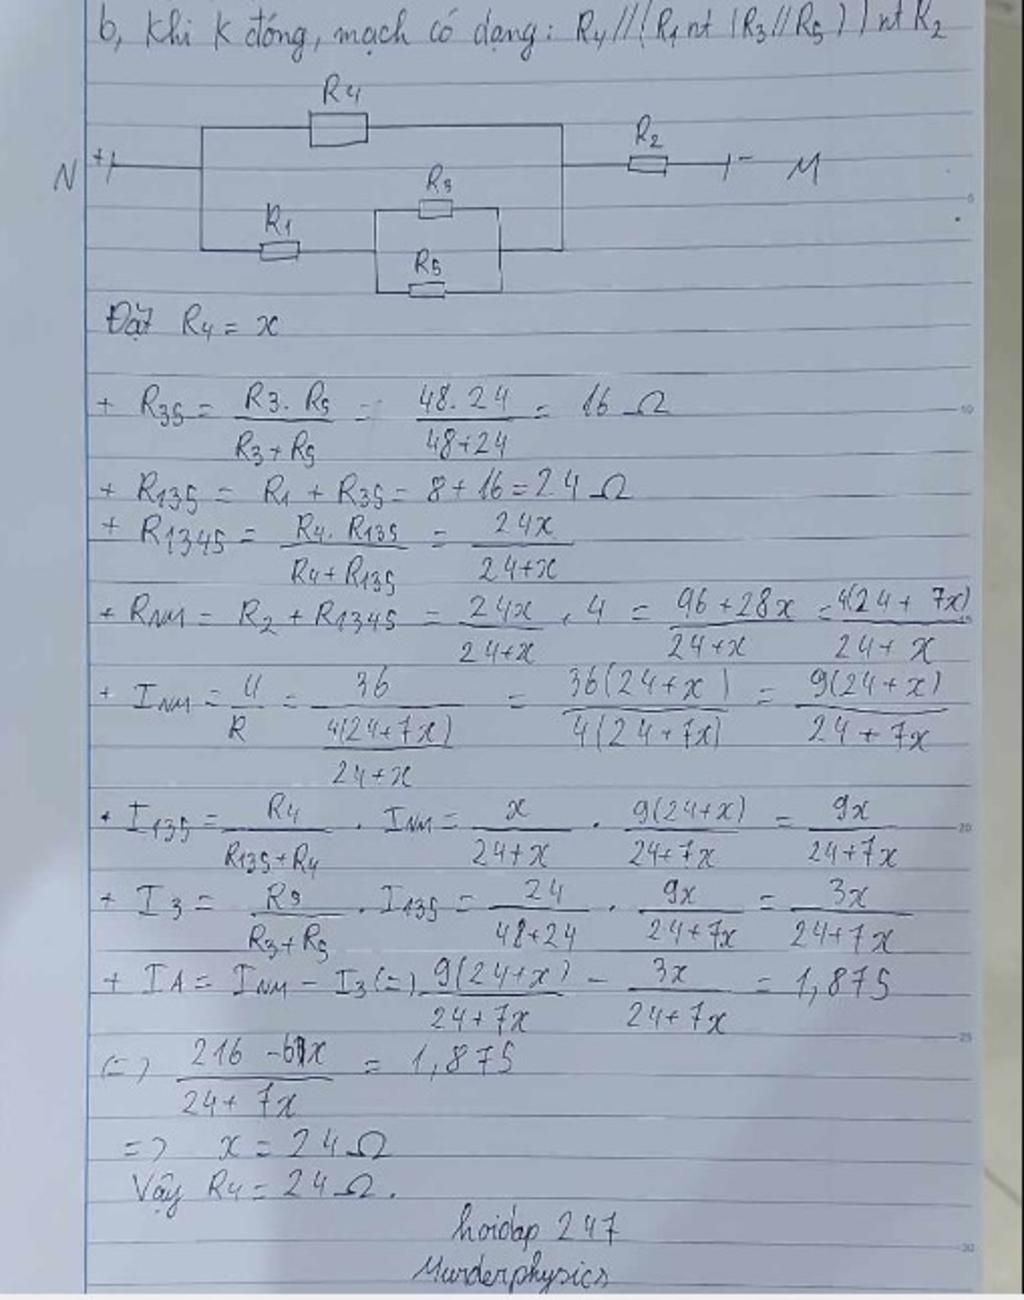 b, Khi K đóng, mạch có dạng: R4//(R1 nt (R3//R5)) nt R2
R4
R2
N + - M
R3
R1
R5
Đặt R4 = x
+ R35 = R3.R5 / R3+R5 = 48.24 / 48+24 = 16 Ω
+ R135 = R1 + R35 = 8 + 16 = 24 Ω
+ R1345 = R4.R135 / R4+R135 = 24x / 24+x
+ RNM = R2 + R1345 = 24x / 24+x + 4 = 96+28x / 24+x = 4(24+7x) / 24+x
+ INM = U / R = 36 / 4(24+7x) / 24+x = 36(24+x) / 4(24+7x) = 9(24+x) / 24+7x
+ I135 = R4 / R135+R4 . INM = x / 24+x . 9(24+x) / 24+7x = 9x / 24+7x
+ I3 = R5 / R3+R5 . I135 = 24 / 48+24 . 9x / 24+7x = 3x / 24+7x
+ IA = INM - I3 (=) 9(24+x) / 24+7x - 3x / 24+7x = 1,875
(=) 216 - 6x / 24+7x = 1,875
=> x = 24 Ω
Vậy R4 = 24 Ω.
hoidap 247
Murderphysics